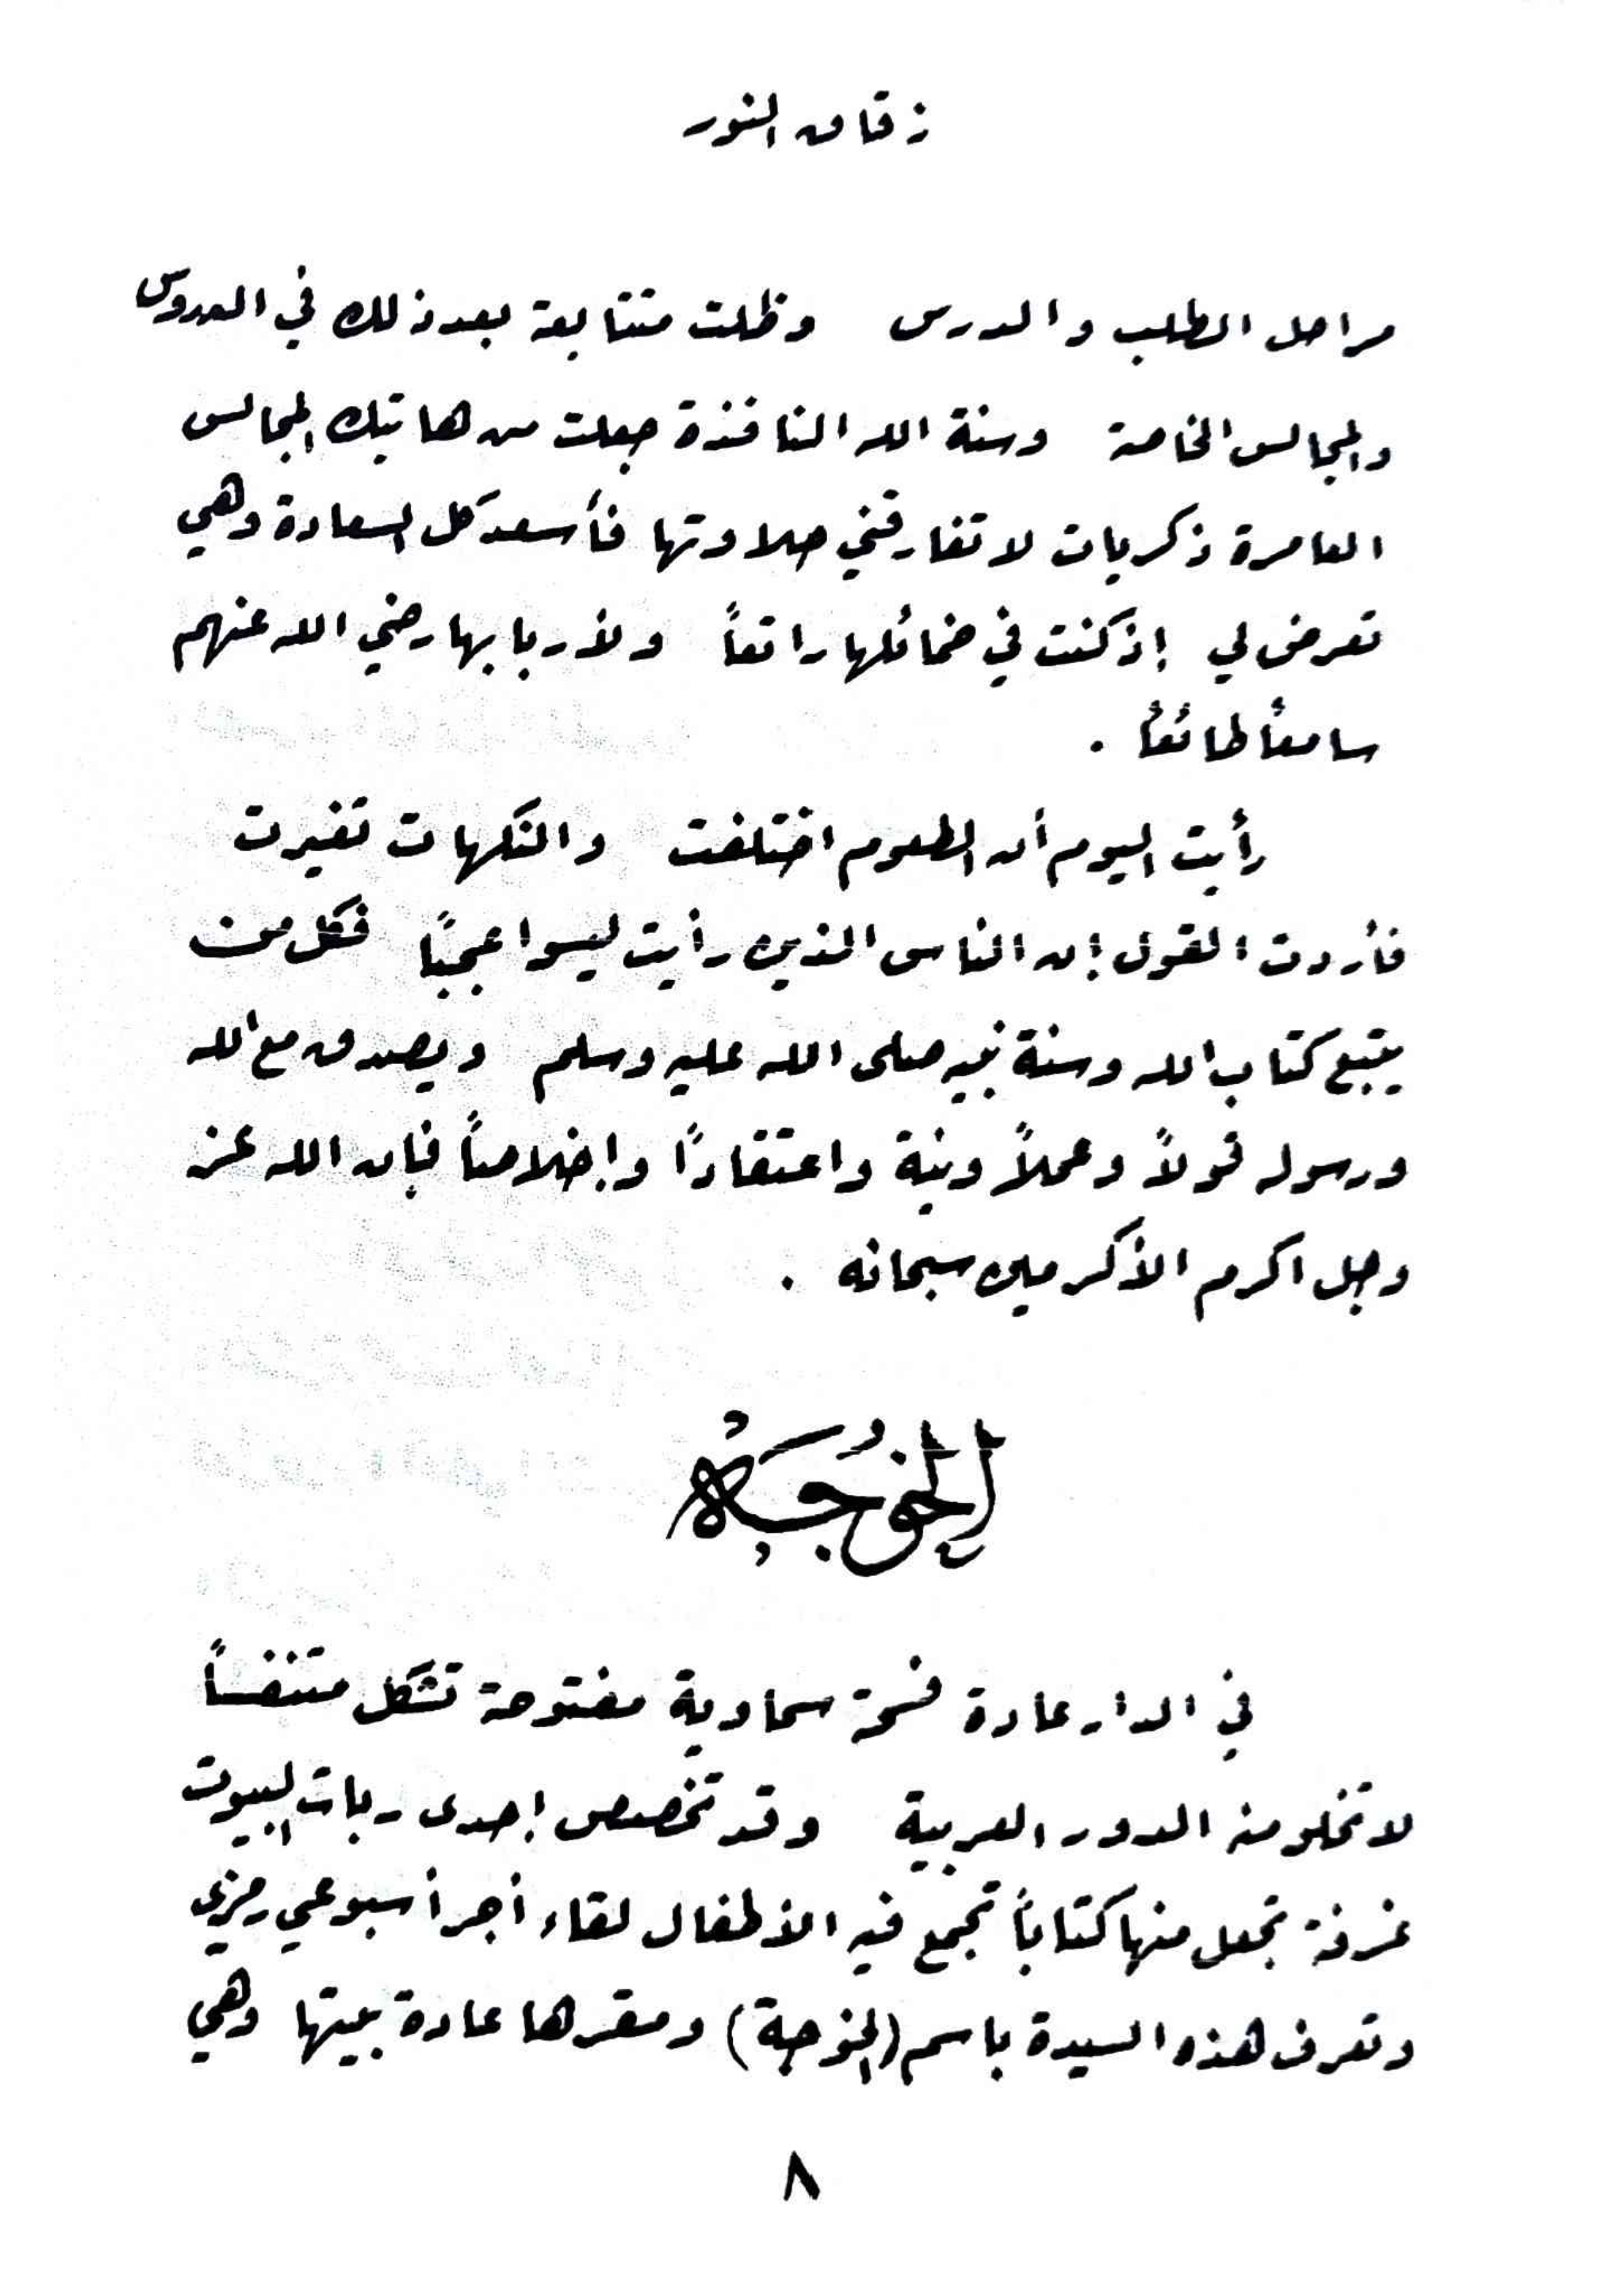 زقاق النور
مراحل الطلب والدرس وظلت متتابعة بعد ذلك في الدروس
والمجالس الخاصة وسنة الله النافذة جعلت من هاتيك المجالس
العامرة ذكريات لا تفارقني حلاوتها فأسعد كل السعادة وهي
تعرض لي إذ كنت في خمائلها راتعاً ولأربابها رضي الله عنهم
سامعاً طائعاً .
رأيت اليوم أن الطعوم اختلفت والنكهات تغيرت
فأردت القول إن الناس الذين رأيت ليسوا عجباً فكل من
يتبع كتاب الله وسنة نبيه صلى الله عليه وسلم ويصدق مع الله
ورسوله قولاً وعملاً ونية واعتقاداً وإخلاصاً فإن الله عز
وجل اكرم الأكرمين سبحانه .
الخوجَه
في الدار عادة فسحة سماوية مفتوحة تشكل متنفساً
لا تخلو منه الدور العربية وقد تخصص إحدى ربات البيوت
غرفة تجعل منها كتاباً تجمع فيه الأطفال لقاء أجر أسبوعي رمزي
وتعرف هذه السيدة باسم (الخوجة) ومقرها عادة بيتها وهي
٨